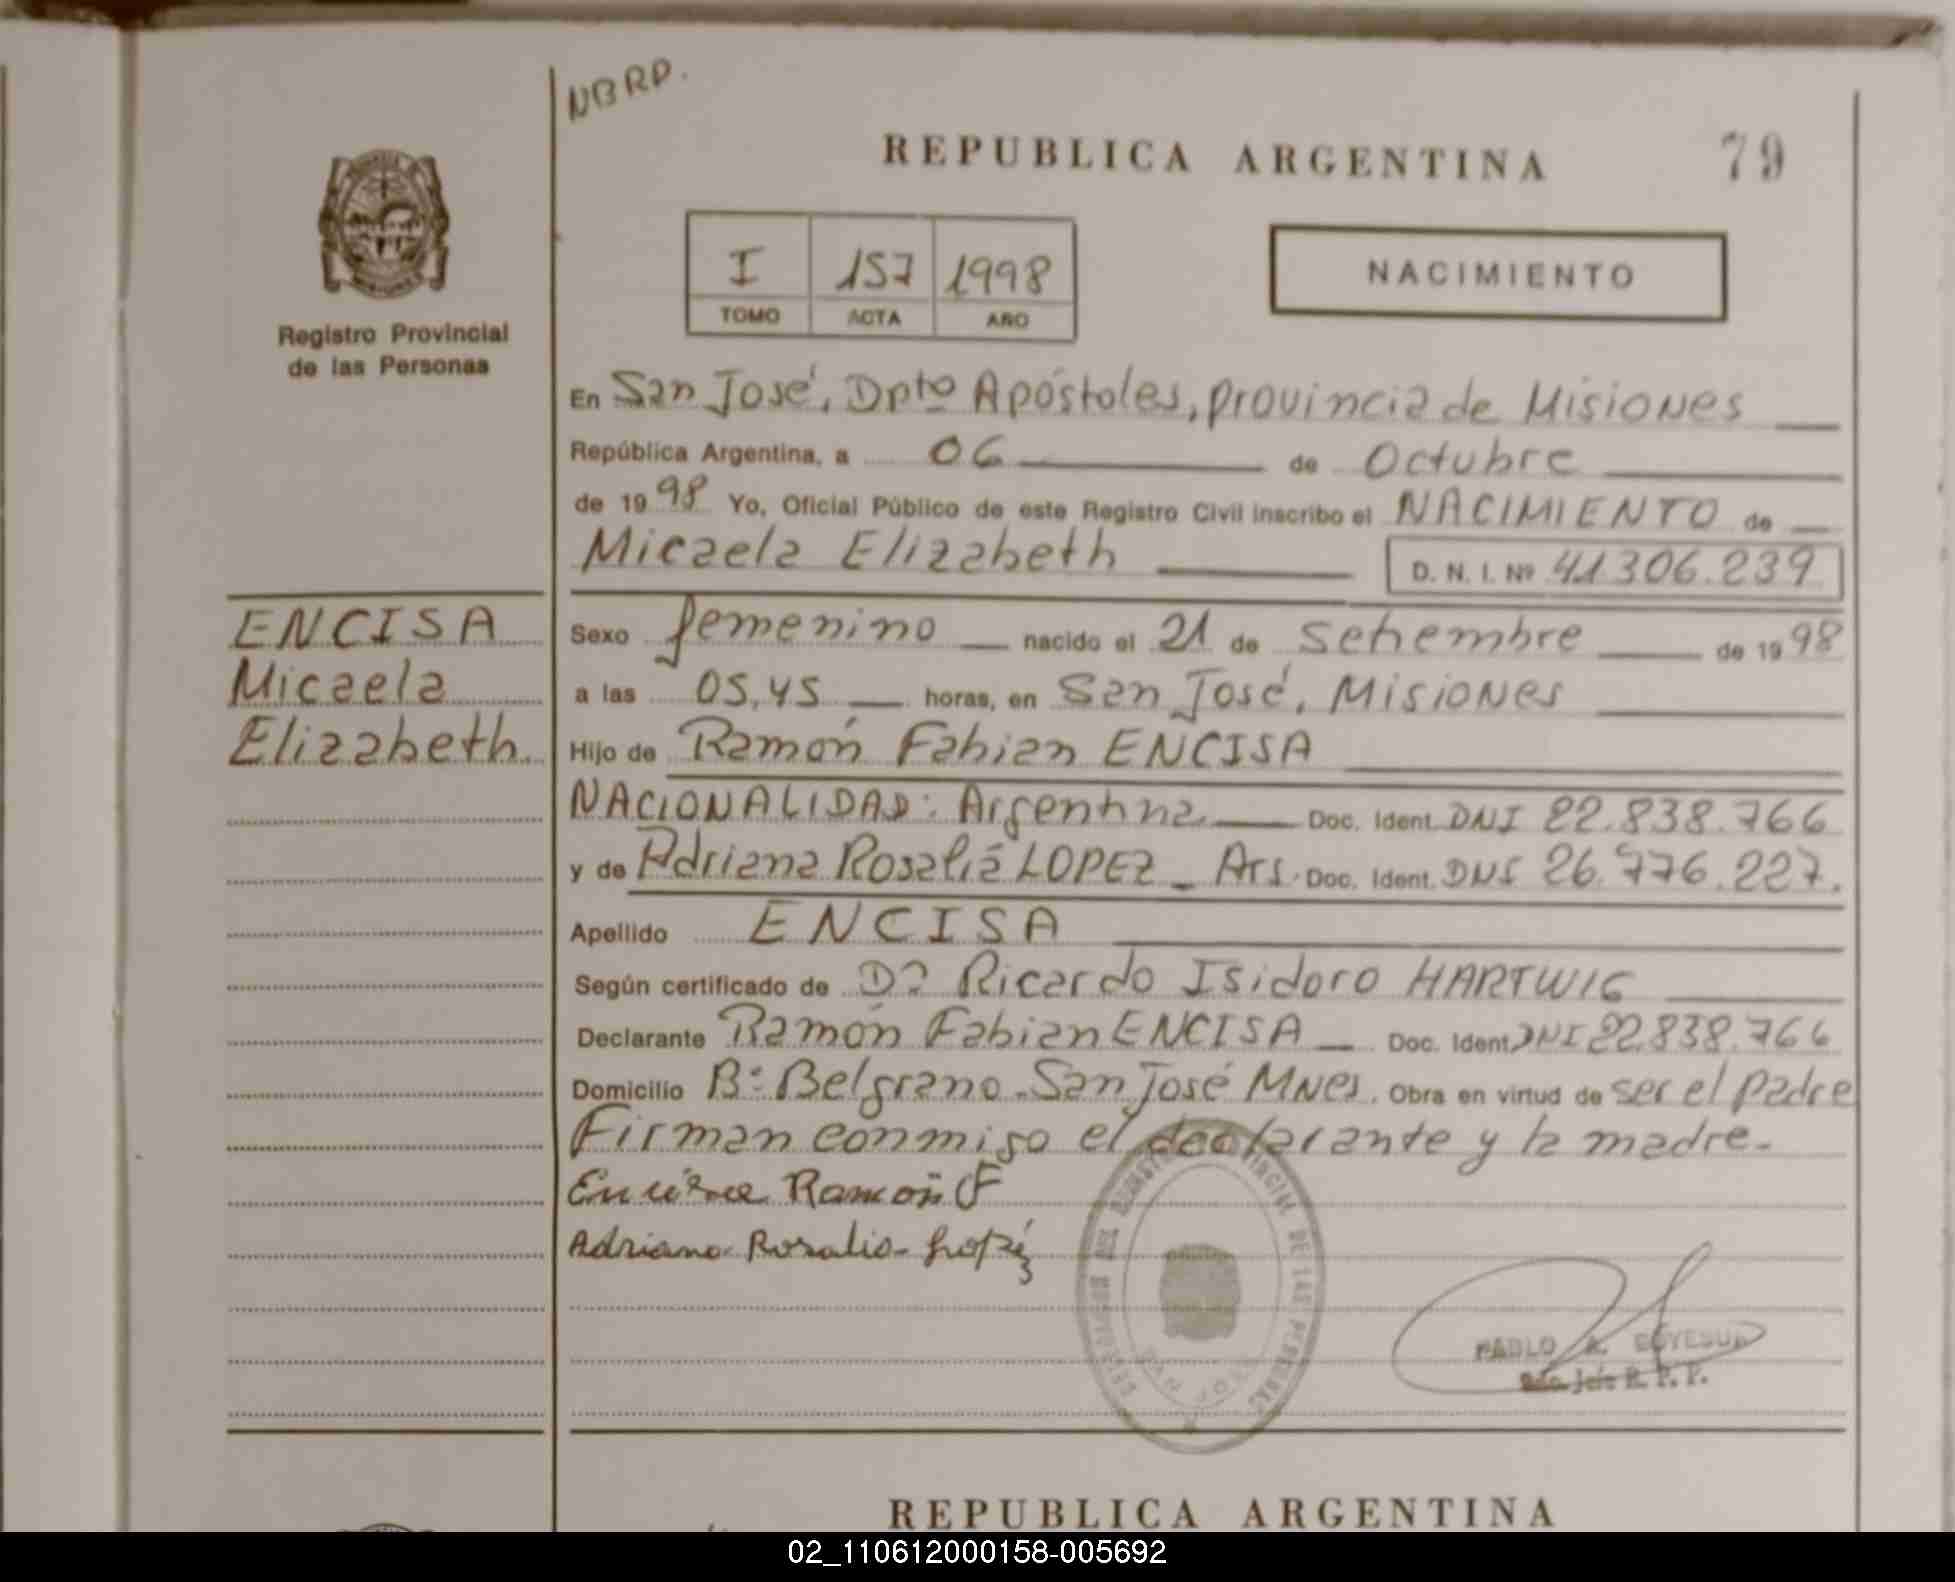 NBRP.
REPUBLICA ARGENTINA 79
I 157 1998
TOMO ACTA AÑO
NACIMIENTO
Registro Provincial
de las Personas
En San José, Dptº Apóstoles, provincia de Misiones
República Argentina, a 06 de Octubre
de 1998 Yo, Oficial Público de este Registro Civil inscribo el NACIMIENTO de
Micaela Elizabeth D. N. I. Nº 41.306.239
ENCISA
Micaela
Elizabeth.
Sexo femenino nacido el 21 de Setiembre de 1998
a las 05,45 horas, en San José, Misiones
Hijo de Ramón Fabian ENCISA
NACIONALIDAD: Argentina Doc. Ident. DNI 22.838.766
y de Adriana Rosalia LOPEZ - Arg. Doc. Ident. DNI 26.776.227.
Apellido ENCISA
Según certificado de Dr Ricardo Isidoro HARTWIG
Declarante Ramón Fabian ENCISA Doc. Ident DNI 22.838.766
Domicilio Bº Belgrano - San José Mnes. Obra en virtud de ser el padre
Firman conmigo el declarante y la madre-
Ramon F
Adriana Rosalia Lopéz
SAN JOSE
PABLO A.
R. P. P.
REPUBLICA ARGENTINA
02_110612000158-005692